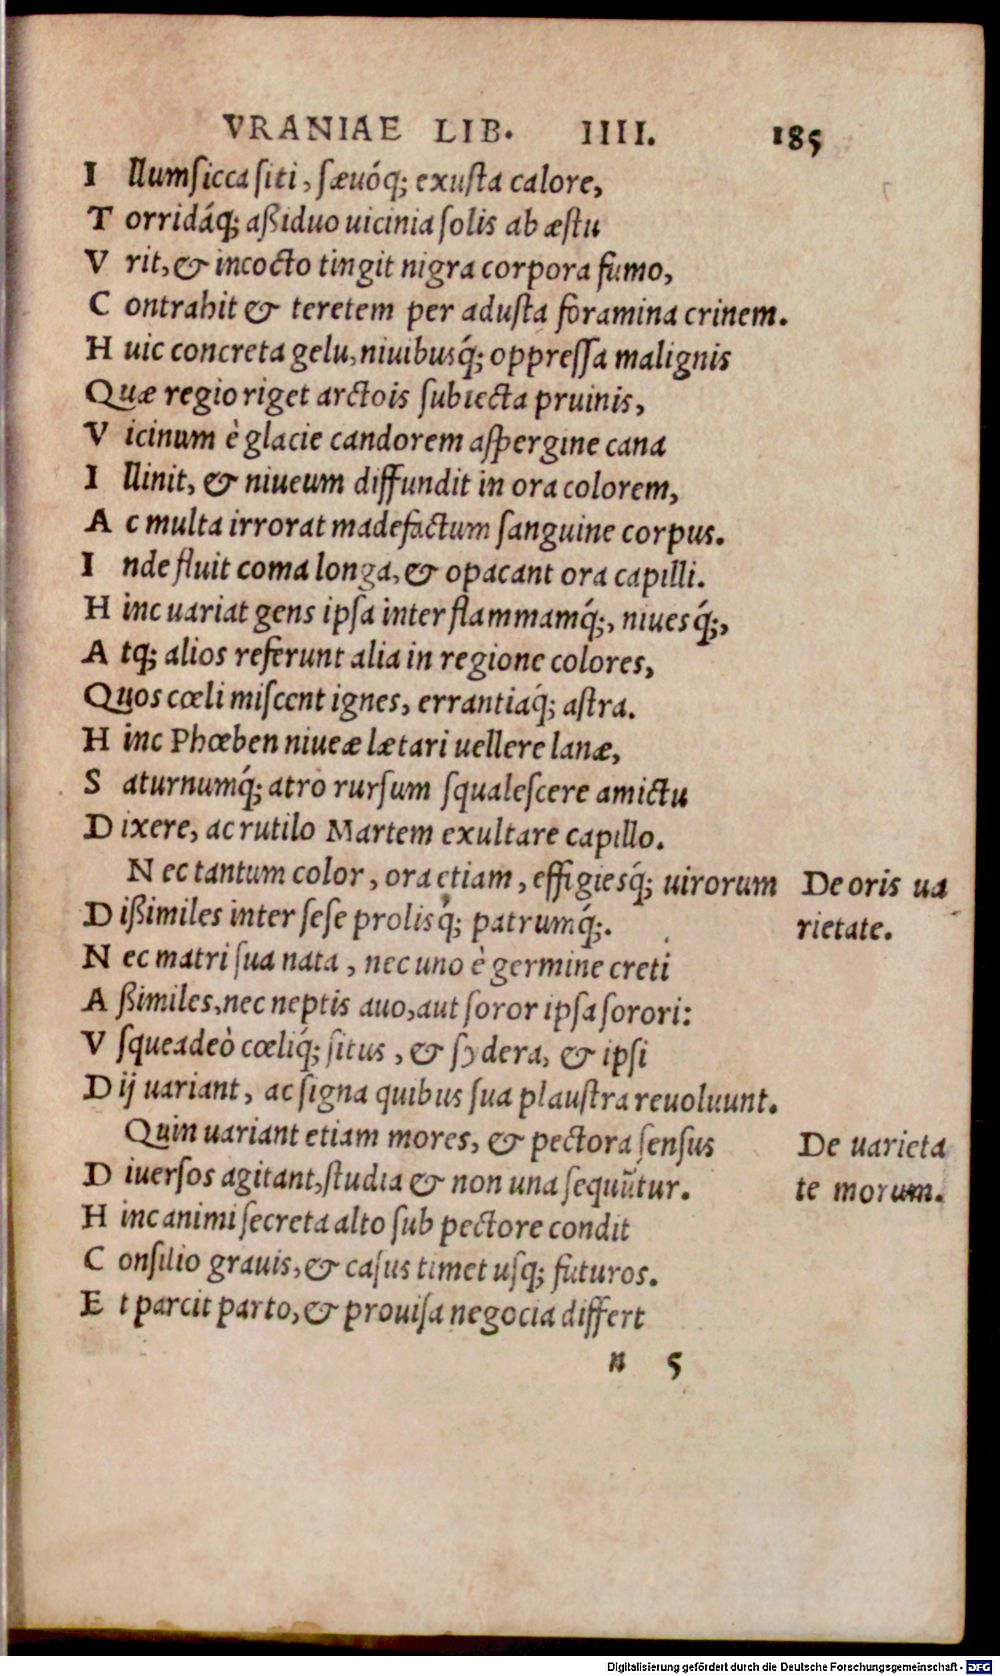 VRANIAE LIB. IIII. 185
I llum sicca siti, sæuóq; exusta calore,
T orridáq; aßiduo uicinia solis ab æstu
V rit, & incocto tingit nigra corpora fumo,
C ontrahit & teretem per adusta foramina crinem.
H uic concreta gelu, niuibusq́; oppressa malignis
Quæ regio riget arctois subiecta pruinis,
V icinum è glacie candorem aspergine cana
I llinit, & niueum diffundit in ora colorem,
A c multa irrorat madefactum sanguine corpus.
I nde fluit coma longa, & opacant ora capilli.
H inc uariat gens ipsa inter flammamq́;, niuesq́;,
A tq; alios referunt alia in regione colores,
Quos cœli miscent ignes, errantiaq́; astra.
H inc Phœben niueæ lætari uellere lanæ,
S aturnumq́; atro rursum squalescere amictu
D ixere, ac rutilo Martem exultare capillo.
N ec tantum color, ora etiam, effigiesq́; uirorum
De oris ua
D ißimiles inter sese prolisq́; patrumq́;.
rietate.
N ec matri sua nata, nec uno è germine creti
A ßimiles, nec neptis auo, aut soror ipsa sorori:
V squeadeò cœliq́; situs, & sydera, & ipsi
D ij uariant, ac signa quibus sua plaustra reuoluunt.
Quin uariant etiam mores, & pectora sensus
De uarieta
D iuersos agitant, studia & non una sequũtur.
te morum.
H inc animi secreta alto sub pectore condit
C onsilio grauis, & casus timet usq; futuros.
E t parcit parto, & prouisa negocia differt
n 5
Digitalisierung gefördert durch die Deutsche Forschungsgemeinschaft - DFG